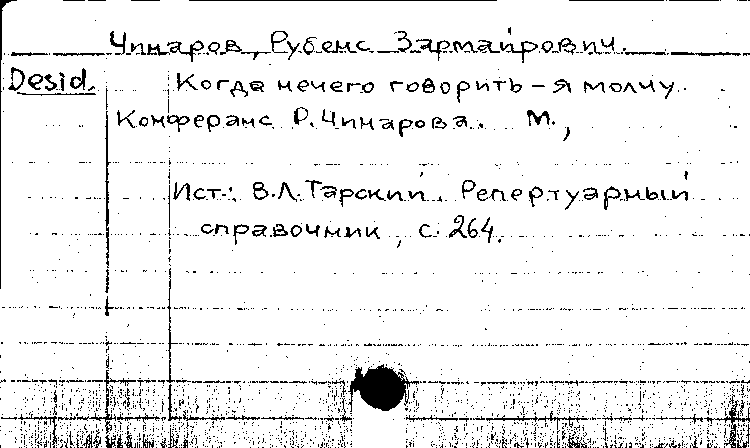 Чинаров, Рубенс Зармайрович.
Desid. Когда нечего говорить – я молчу.
Конферанс Р. Чинарова. М.,
Ист.: В.Л. Тарский. Репертуарный
справочник, с. 264.